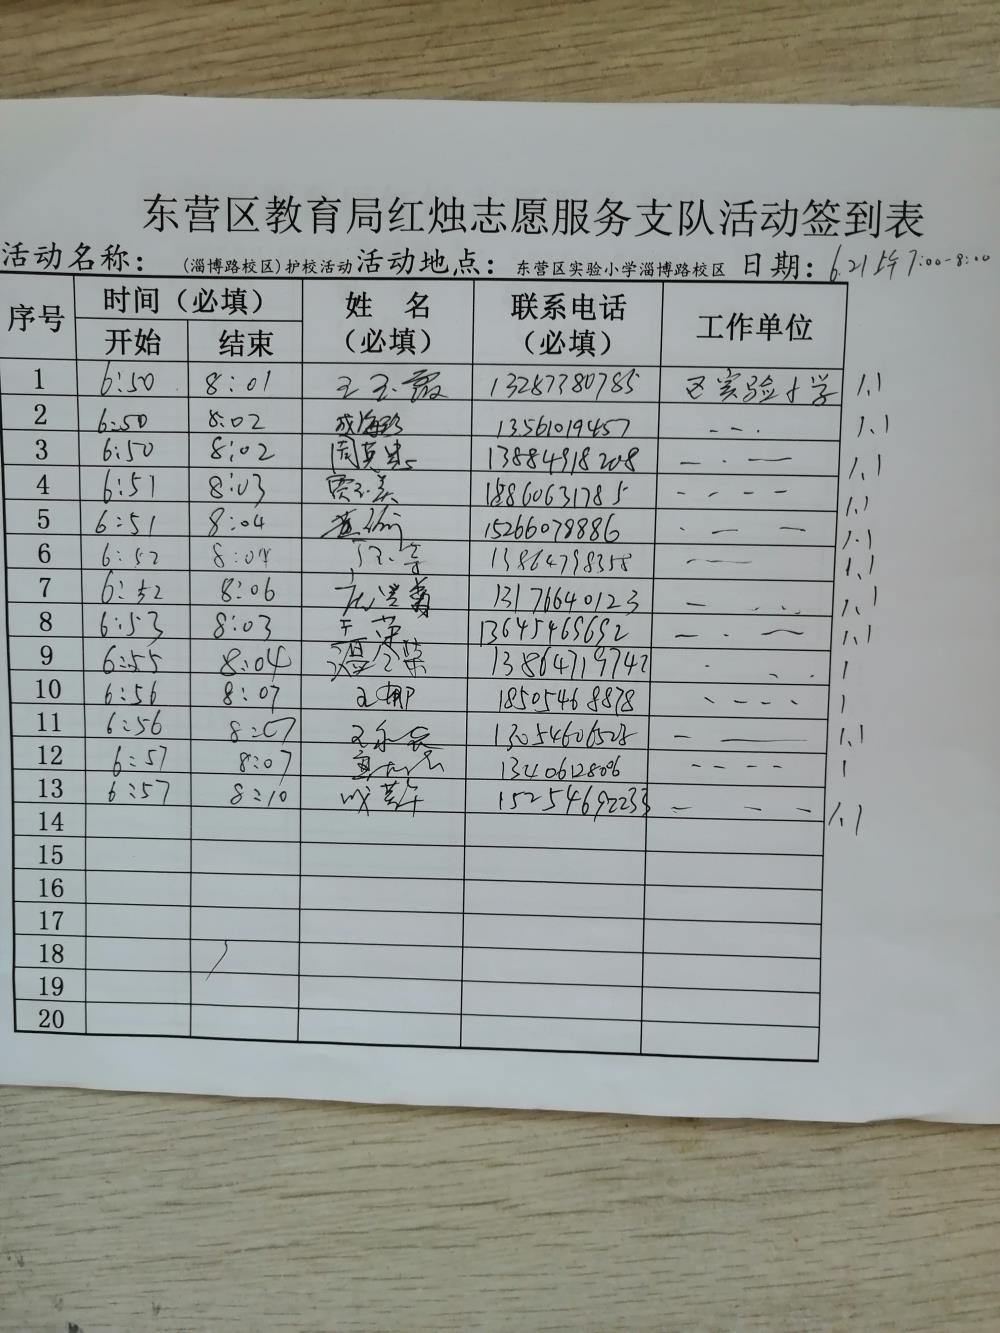 东营区教育局红烛志愿服务支队活动签到表
活动名称： (淄博路校区)护校活动 活动地点： 东营区实验小学淄博路校区 日期： 6.21 上午 7:00-8:00
序号 时间（必填） 姓 名（必填） 联系电话（必填） 工作单位
开始 结束
1 6:50 8:01 王玉霞 13287380785 区实验小学 1.1
2 6:50 8:02 13561019457 1.1
3 6:50 8:02 周英 13884918208 1.1
4 6:51 8:03 贾玉美 18860631785 1.1
5 6:51 8:04 15266078886 1.1
6 6:52 8:04 13864798358 1.1
7 6:52 8:06 13176640123 1.1
8 6:53 8:03 13645465692 1.1
9 6:55 8:04 13864719742 1
10 6:56 8:07 王娜 18505468878 1
11 6:56 8:07 王永 13054606528 1.1
12 6:57 8:07 1340612806 1
13 6:57 8:10 15254692233 1.1
14
15
16
17
18
19
20